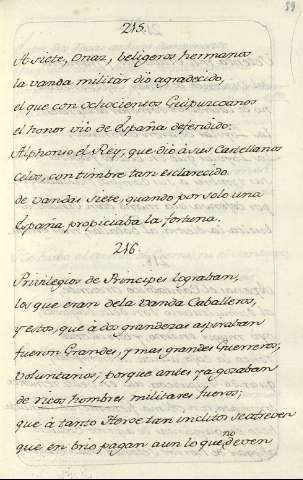 59
215.
A siete, Onaz, beligeros hermanos
la vanda militar dio agradecido,
el que con ochocientos Guipuzcoanos
el honor vio de España defendido:
Alphonso el Rey, que diò à sus Castellanos
Celos, con timbre tam esclarecido
de vandas siete, quando por solo una
España propiciaba la fortuna.
216.
Privilegios de Principes lograban,
los que eran dela Vanda Caballeros,
y estos, que à dos grandezas aspiraban
fueron Grandes, y mas grandes Guerreros;
Voluntarios; porque antes ya gozaban
de ricos hombres militares fueros;
que à tanto Heroe tan inclitos se atreven
que en brio pagan aun lo que no deven